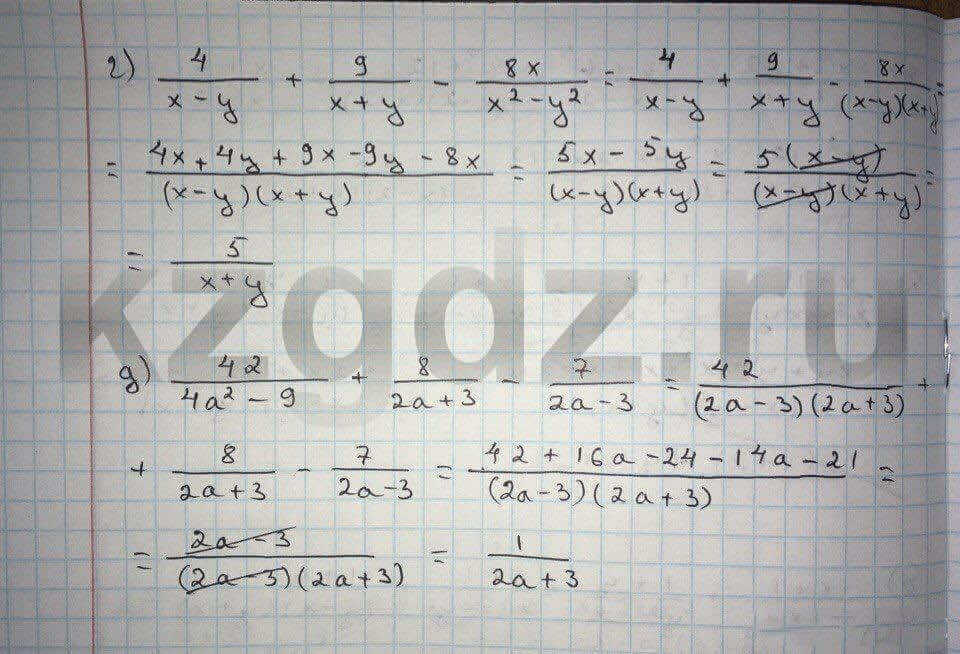 г) 4/(x-y) + 9/(x+y) - 8x/(x²-y²) = 4/(x-y) + 9/(x+y) - 8x/((x-y)(x+y)) =
= (4x+4y+9x-9y-8x)/((x-y)(x+y)) = (5x-5y)/((x-y)(x+y)) = 5(x-y)/((x-y)(x+y)) =
= 5/(x+y)
kzgdz.ru
g) 42/(4a²-9) + 8/(2a+3) - 7/(2a-3) = 42/((2a-3)(2a+3)) +
+ 8/(2a+3) - 7/(2a-3) = (42+16a-24-14a-21)/((2a-3)(2a+3)) =
= (2a-3)/((2a-3)(2a+3)) = 1/(2a+3)